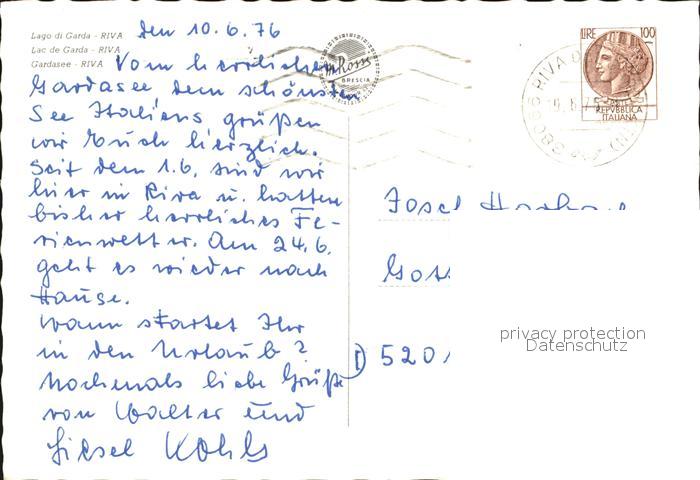 Lago di Garda - RIVA
Lac de Garda - RIVA
Gardasee - RIVA
den 10.6.76
Vom herrlichen
Gardasee dem schönsten
See Italiens grüßen
wir Euch herzlich.
Seit dem 1.6. sind wir
hier in Riva u. hatten
bisher herrliches Fe-
rienwetter. Am 24.6.
geht es wieder nach
Hause.
Wann startet Ihr
in den Urlaub?
Nochmals liebe Grüße
von Walter und
Liesel Kohls
BRESCIA
LIRE 100
REPVBBLICA
ITALIANA
38066 RIVA D
(TN)
Josef
D 520
privacy protection
Datenschutz